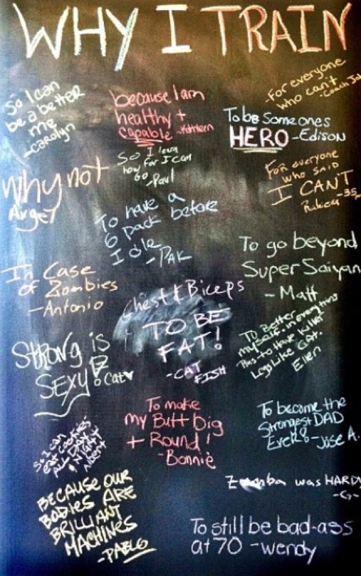 WHY I TRAIN
So I can
be a better
me
-Carolyn
because I am
healthy +
capable -Kathleen
-for everyone
who can't
-Coach Ja
To be Someones
HERO -Edison
So I learn
how far I can
go
-Paul
Why not
Angel
For everyone
who said
I CAN'T
To have a
6 pack before
I die
-PAK
To go beyond
Super Saiyan
- Matt
In Case
of Zombies
-Antonio
Chest & Biceps
TO BE
FAT!
-CAT
FISH
To Better
myself in everything
Plus to have killer
Legs like Cat.
Ellen
Strong is
SEXY! Cat
To make
my Butt big
+ Round!
-Bonnie
To become the
Strongest DAD
Ever! -Jose A.
So I can
eat cookies
Zumba was HARD
-G
BECAUSE OUR
BODIES ARE
BRILLIANT
MACHINES
-PABLO
To still be bad-ass
at 70 -wendy